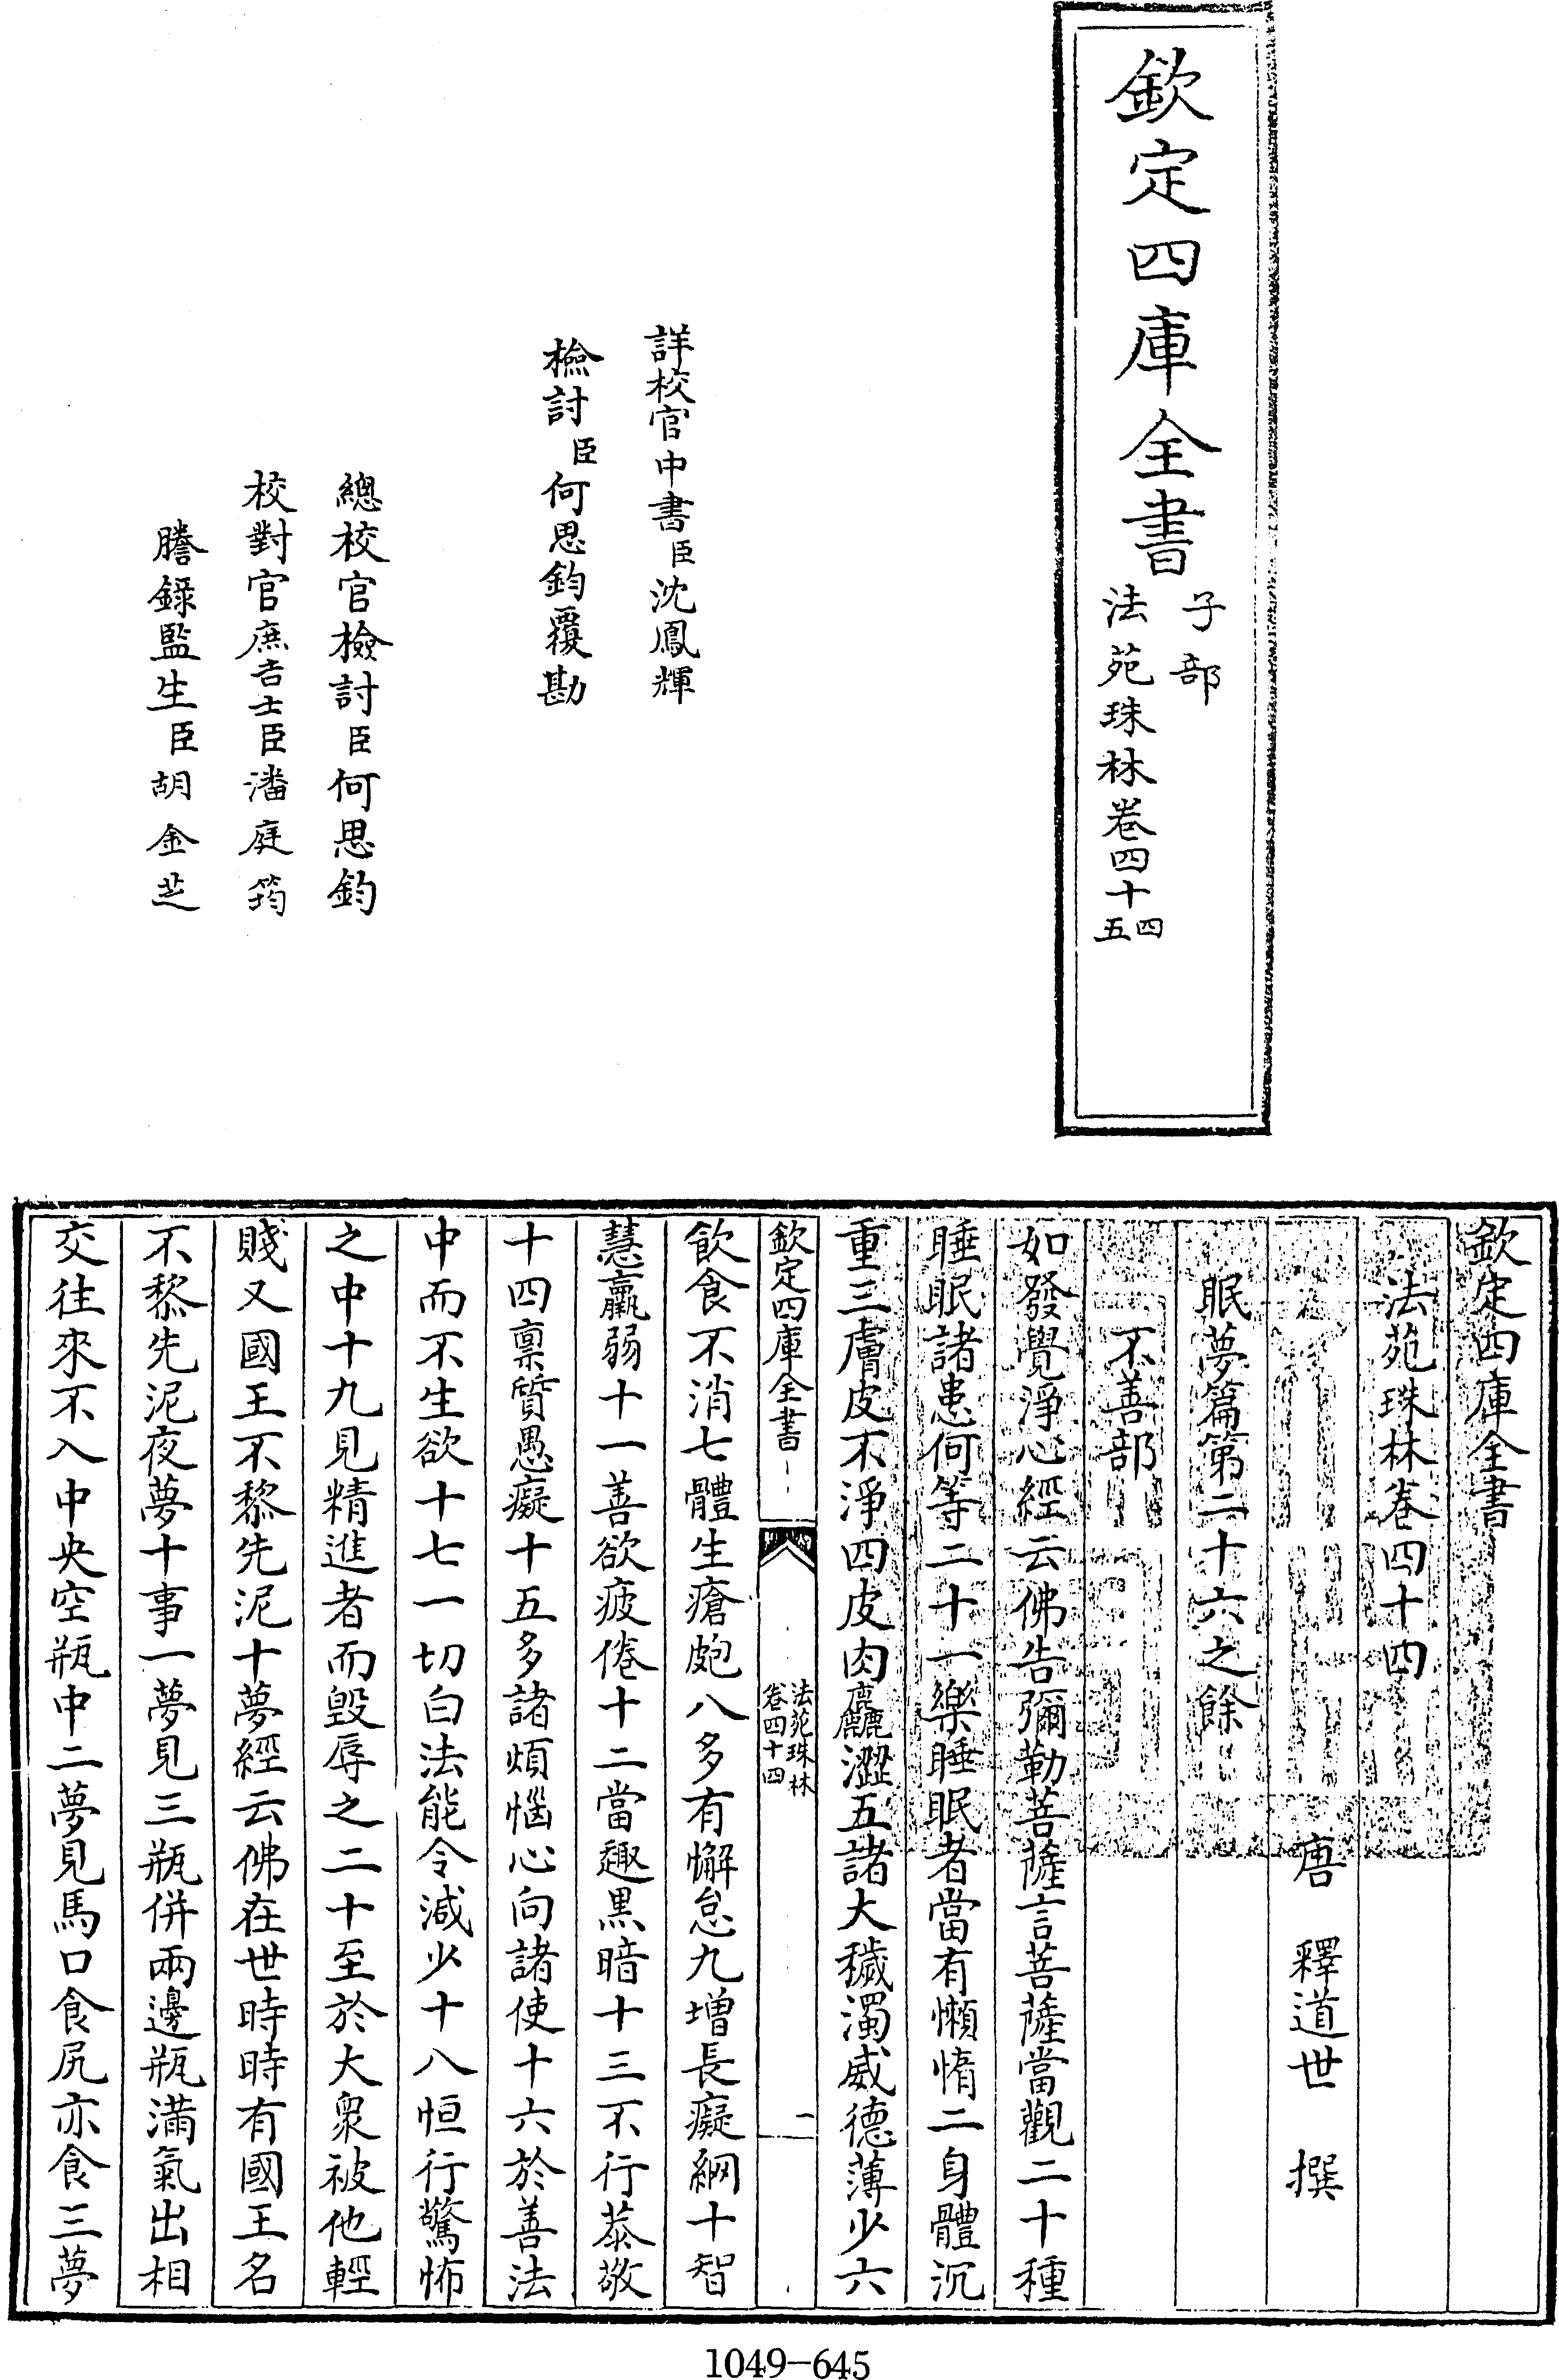 欽定四庫全書
子部
法苑珠林卷四十四
五
詳校官中書臣沈鳳輝
檢討臣何思鈞覆勘
總校官檢討臣何思鈞
校對官庶吉士臣潘庭筠
謄錄監生臣胡金芝
欽定四庫全書
法苑珠林卷四十四
唐 釋道世 撰
眠夢篇第二十六之餘
不善部
如發覺淨心經云佛告彌勒菩薩言菩薩當觀二十種
睡眠諸患何等二十一樂睡眠者當有懶惰二身體沉
重三膚皮不淨四皮肉麤澀五諸大穢濁威德薄少六
欽定四庫全書
法苑珠林
卷四十四
一
飲食不消七體生瘡皰八多有懈怠九增長癡網十智
慧羸弱十一善欲疲倦十二當趣黑暗十三不行恭敬
十四禀質愚癡十五多諸煩惱心向諸使十六於善法
中而不生欲十七一切白法能令減少十八恒行驚怖
之中十九見精進者而毀辱之二十至於大衆被他輕
賤又國王不黎先泥十夢經云佛在世時時有國王名
不黎先泥夜夢十事一夢見三瓶併兩邊瓶滿氣出相
交往來不入中央空瓶中二夢見馬口食尻亦食三夢
1049-645